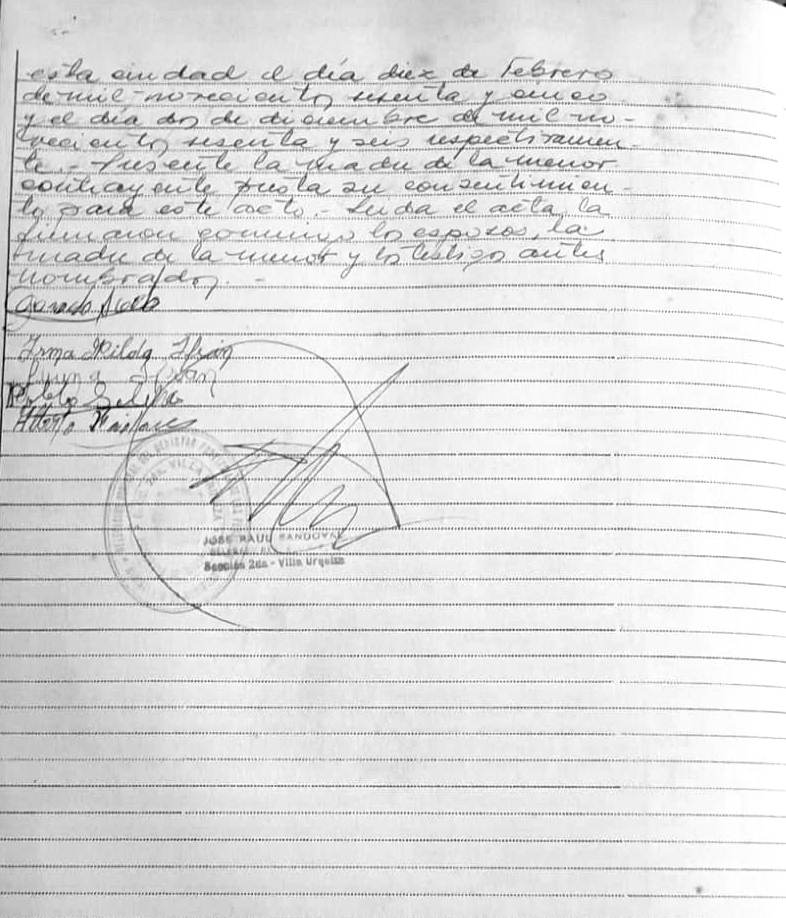 esta ciudad el día diez de Febrero
de mil novecientos sesenta y cinco
y el día dos de diciembre de mil no-
vecientos sesenta y seis respectivamen-
te.- Presente la madre de la menor
contrayente presta su consentimien-
to para este acto.- Leida el acta, la
firmaron conmigo los esposos, la
madre de la menor y los testigos antes
nombrados.-
Irma Hilda
Alberto
JOSE RAUL SANDOVAL
Sección 2da - Villa Urquiza